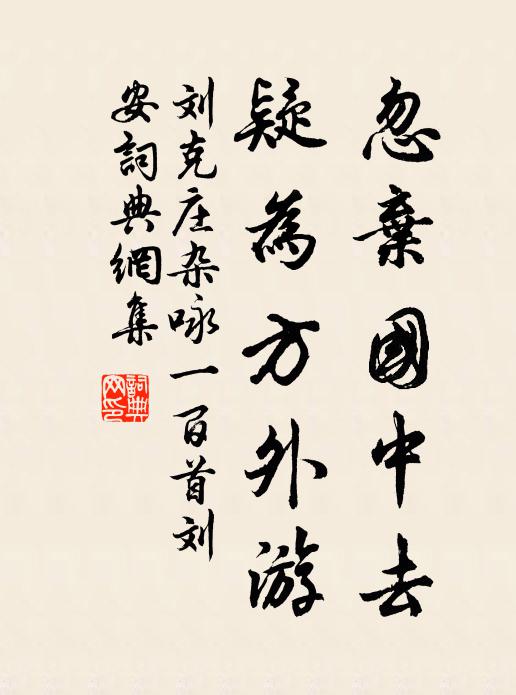 忽棄國中去
疑為方外游
刘克庄杂咏一百首刘
安詞典網集
詞典网印